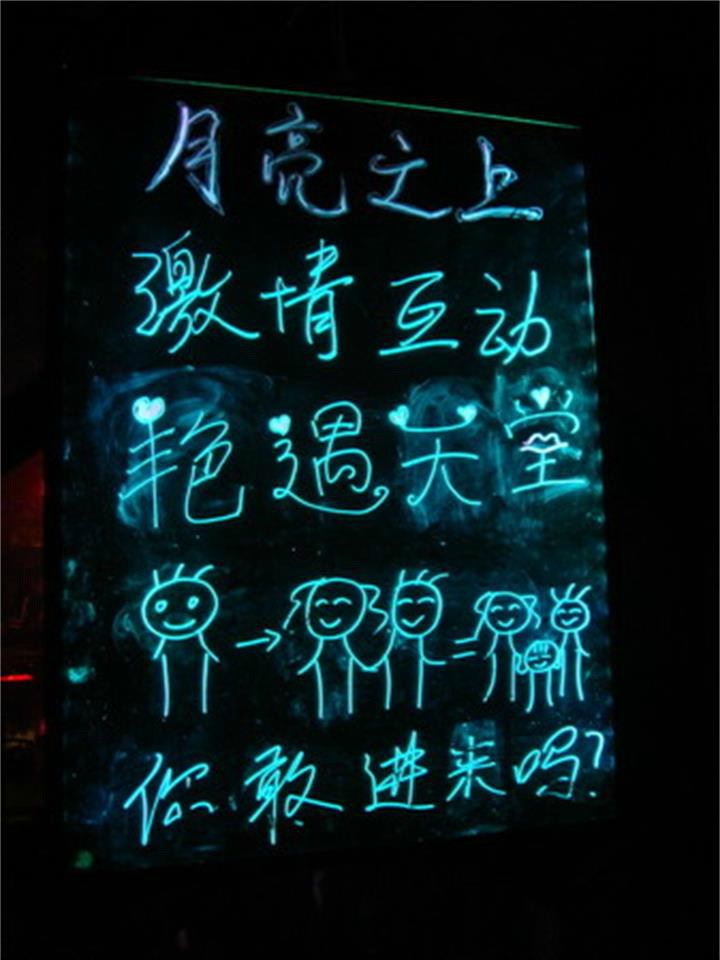 月亮之上
激情互动
艳遇天堂
你敢进来吗?